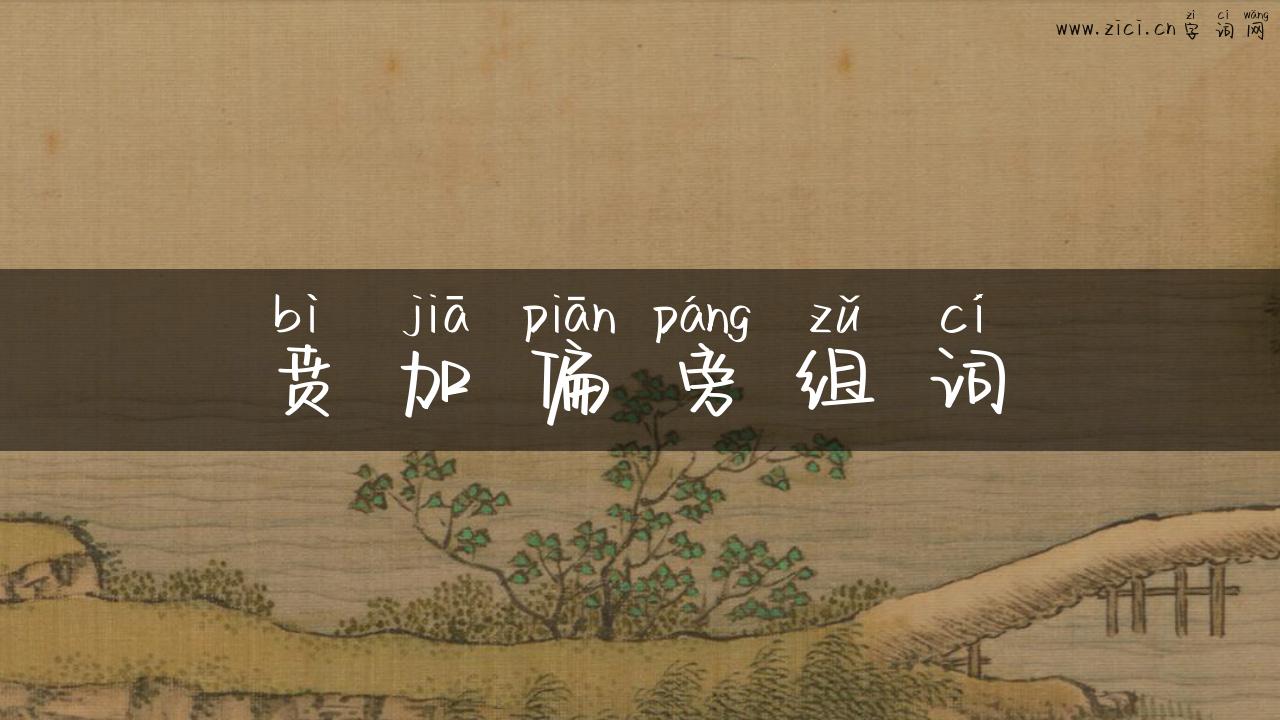 zì cí wǎng
www.zici.cn 字词网
bì jiā piān páng zǔ cí
贲加偏旁组词